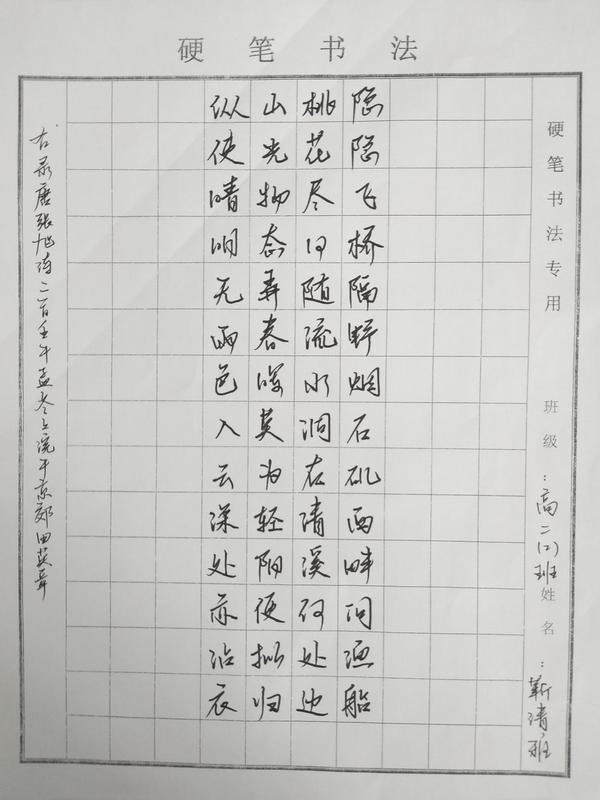 硬笔书法
硬笔书法专用 班级：高二(2)班 姓名：靳清雅
隐隐飞桥隔野烟石矶西畔问渔船
桃花尽日随流水洞在清溪何处边
山光物态弄春晖莫为轻阳便拟归
纵使晴明无雨色入云深处亦沾衣
右录唐张旭诗二首壬午孟冬上浣于京郊田英章